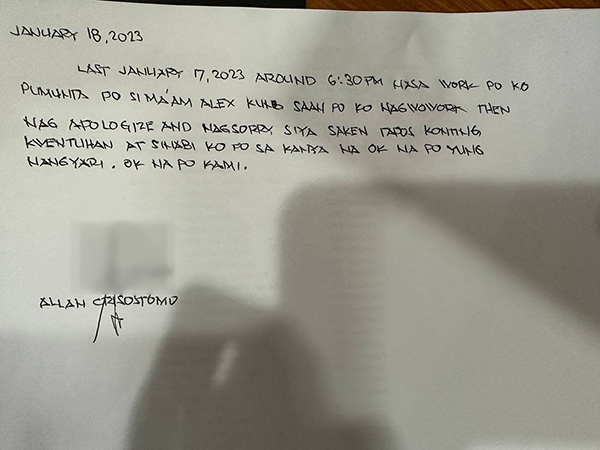 JANUARY 18, 2023
LAST JANUARY 17, 2023 AROUND 6:30PM NASA WORK PO KO
PUMUNTA PO SI MA'AM ALEX KUNG SAAN PO KO NAGWOWORK THEN
NAG APOLOGIZE AND NAGSORRY SIYA SAKEN TAPOS KONTING
KWENTUHAN AT SINABI KO PO SA KANYA NA OK NA PO YUNG
NANGYARI. OK NA PO KAMI.
ALLAN CRISOSTOMO